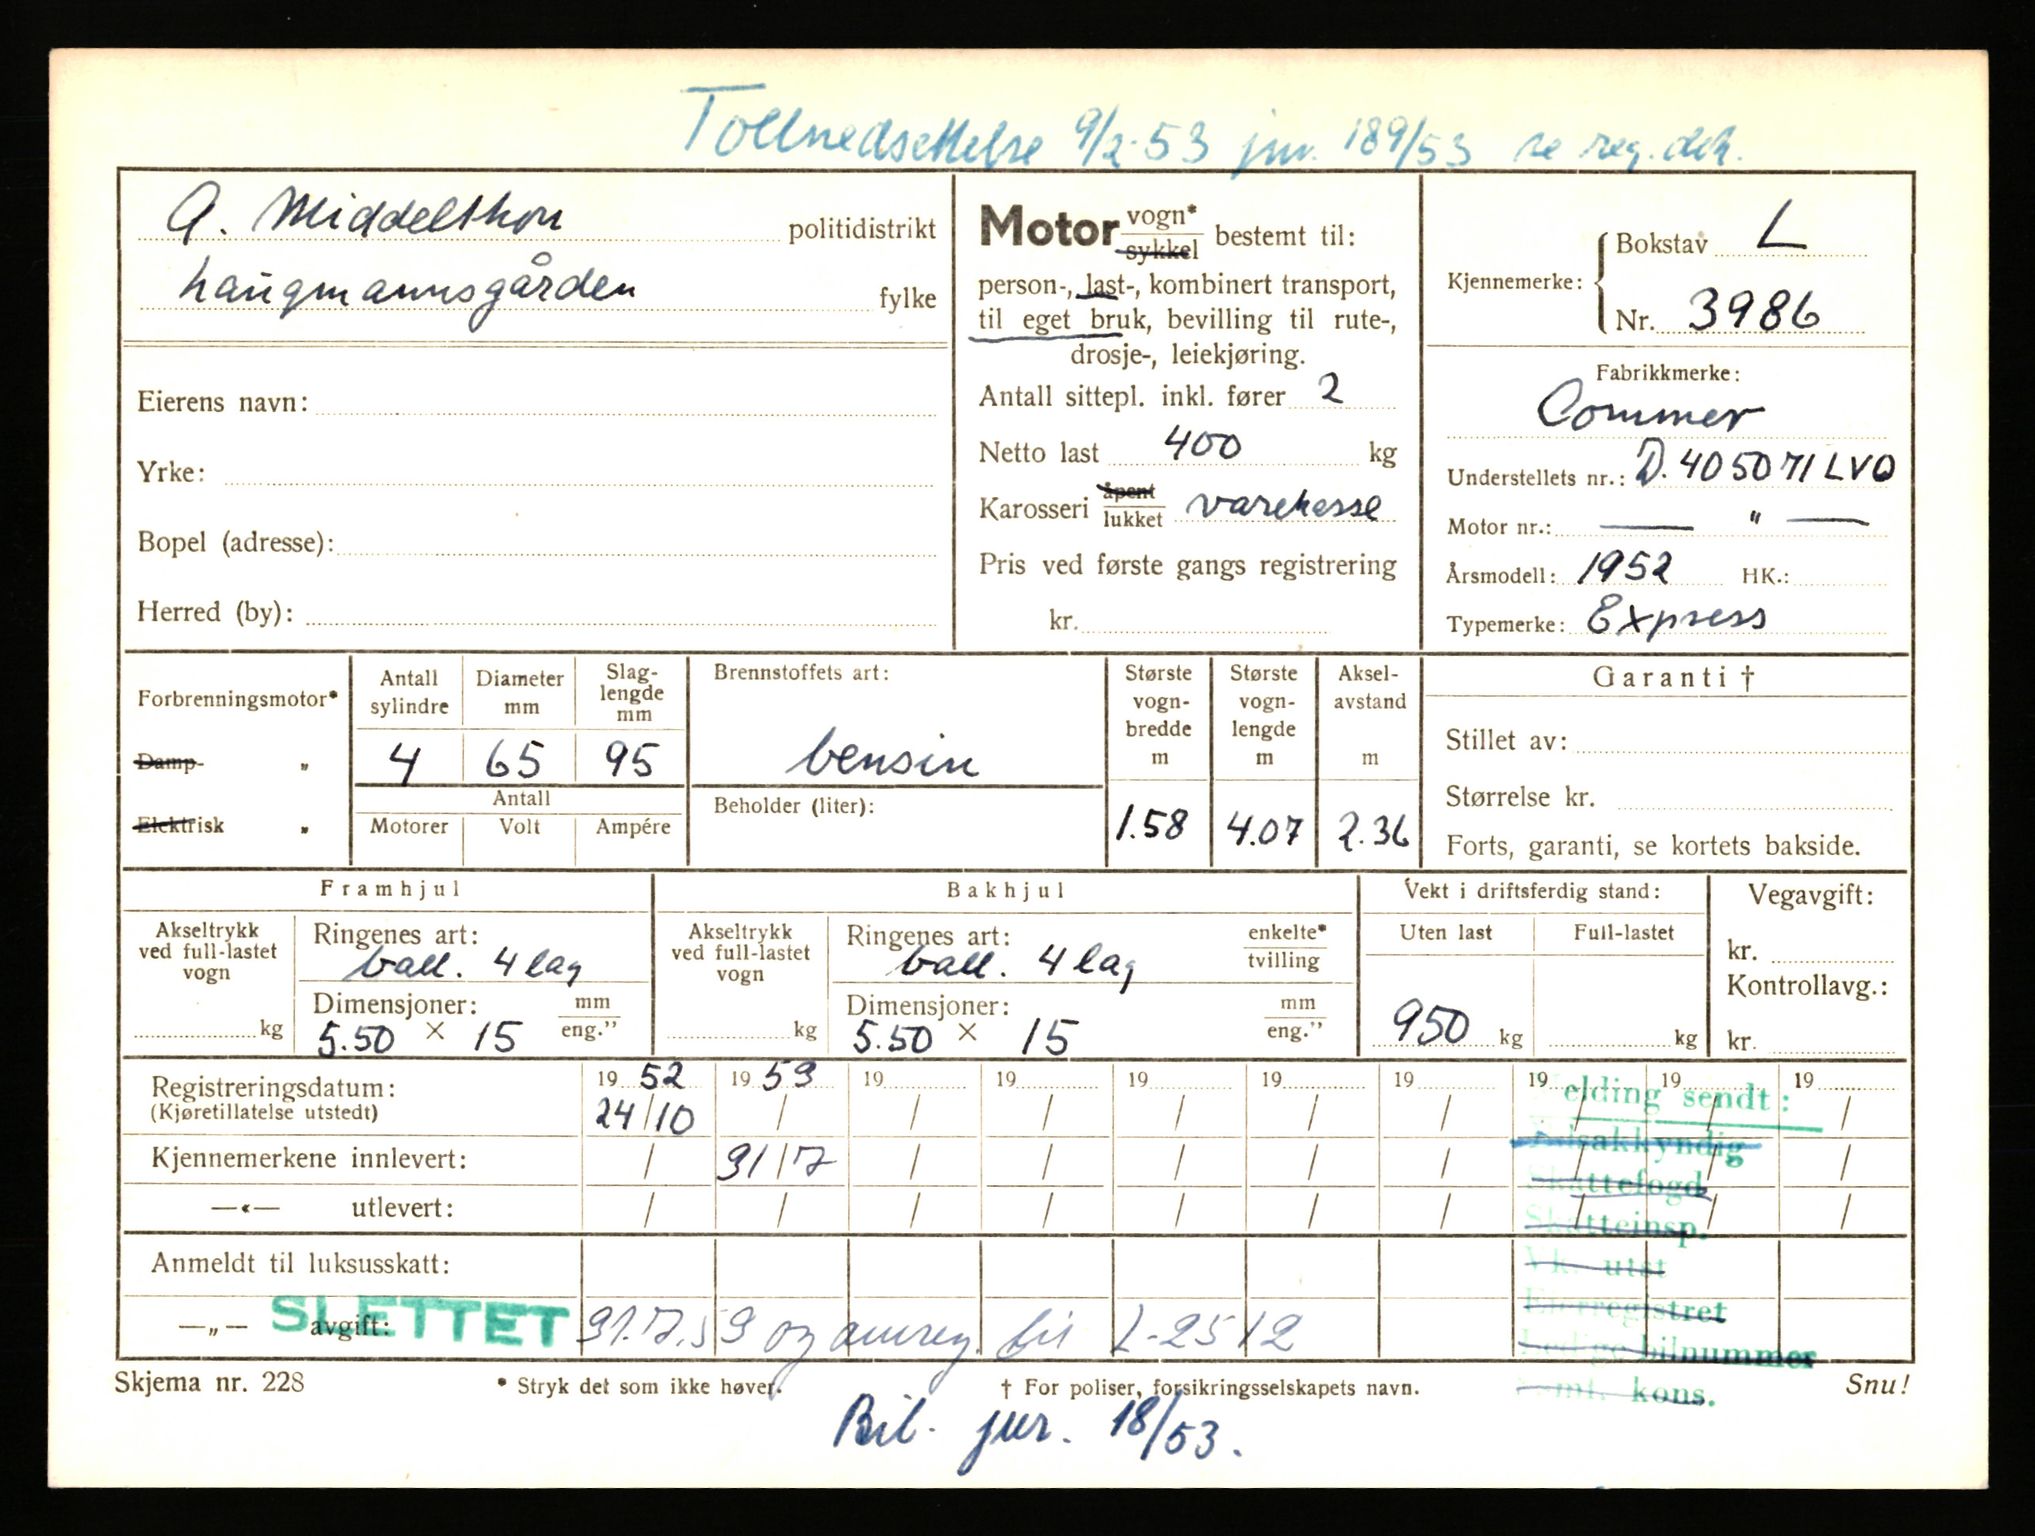 Tollnedsettelse 9/2-53 jnr. 189/53 se reg. dek.
A. Middelthon politidistrikt
Haugmannsgården fylke
Eierens navn:
Yrke:
Bopel (adresse):
Herred (by):
Motor vogn* sykkel bestemt til:
person-, last-, kombinert transport,
til eget bruk, bevilling til rute-,
drosje-, leiekjøring.
Antall sittepl. inkl. fører 2
Netto last 400 kg
Karosseri åpent lukket varekasse
Pris ved første gangs registrering
kr.
Kjennemerke: Bokstav L
Nr. 3986
Fabrikkmerke:
Commer
Understellets nr.: D. 405071 LVO
Motor nr.: — " —
Årsmodell: 1952 HK.:
Typemerke: Express
Forbrenningsmotor*
Damp- "
Elektrisk "
Antall sylindre
Diameter mm
Slag-lengde mm
4 65 95
Antall
Motorer Volt Ampére
Brennstoffets art:
bensin
Beholder (liter):
Største vogn-bredde m
1.58
Største vogn-lengde m
4.07
Aksel-avstand m
2.36
Garanti †
Stillet av:
Størrelse kr.
Forts, garanti, se kortets bakside.
Framhjul
Akseltrykk ved full-lastet vogn
kg
Ringenes art:
ball. 4 lag
Dimensjoner: mm eng."
5.50 × 15
Bakhjul
Akseltrykk ved full-lastet vogn
kg
Ringenes art: enkelte* tvilling
ball. 4 lag
Dimensjoner: mm eng."
5.50 × 15
Vekt i driftsferdig stand:
Uten last Full-lastet
950 kg kg
Vegavgift:
kr.
Kontrollavg.:
kr.
Registreringsdatum: 19 52 19 59 19 19 19 19 19 19 19 19
(Kjøretillatelse utstedt) 24/10 / / / / / / / / /
Kjennemerkene innlevert: / 31/7 / / / / / / / /
—«— utlevert: / / / / / / / / / /
Anmeldt til luksusskatt:
—„— avgift:
SLETTET 31.7.59 og omreg. til L-2512
elding sendt:
sakkyndig
Skattefogd
Skatteinsp.
Vk. utst
Eierregistret
Ledige bilnummer
kons.
Skjema nr. 228
* Stryk det som ikke høver.
† For poliser, forsikringsselskapets navn.
Snu!
Bil. jnr. 18/53.